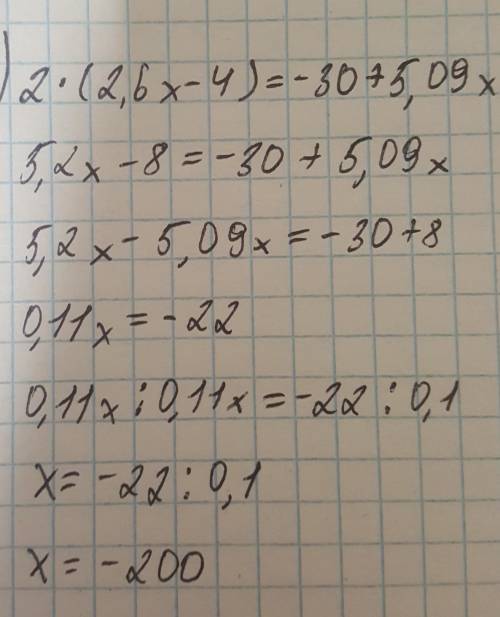 ) 2·(2,6x-4)=-30+5,09x
5,2x-8=-30+5,09x
5,2x-5,09x=-30+8
0,11x=-22
0,11x:0,11x=-22:0,1
x=-22:0,1
x=-200